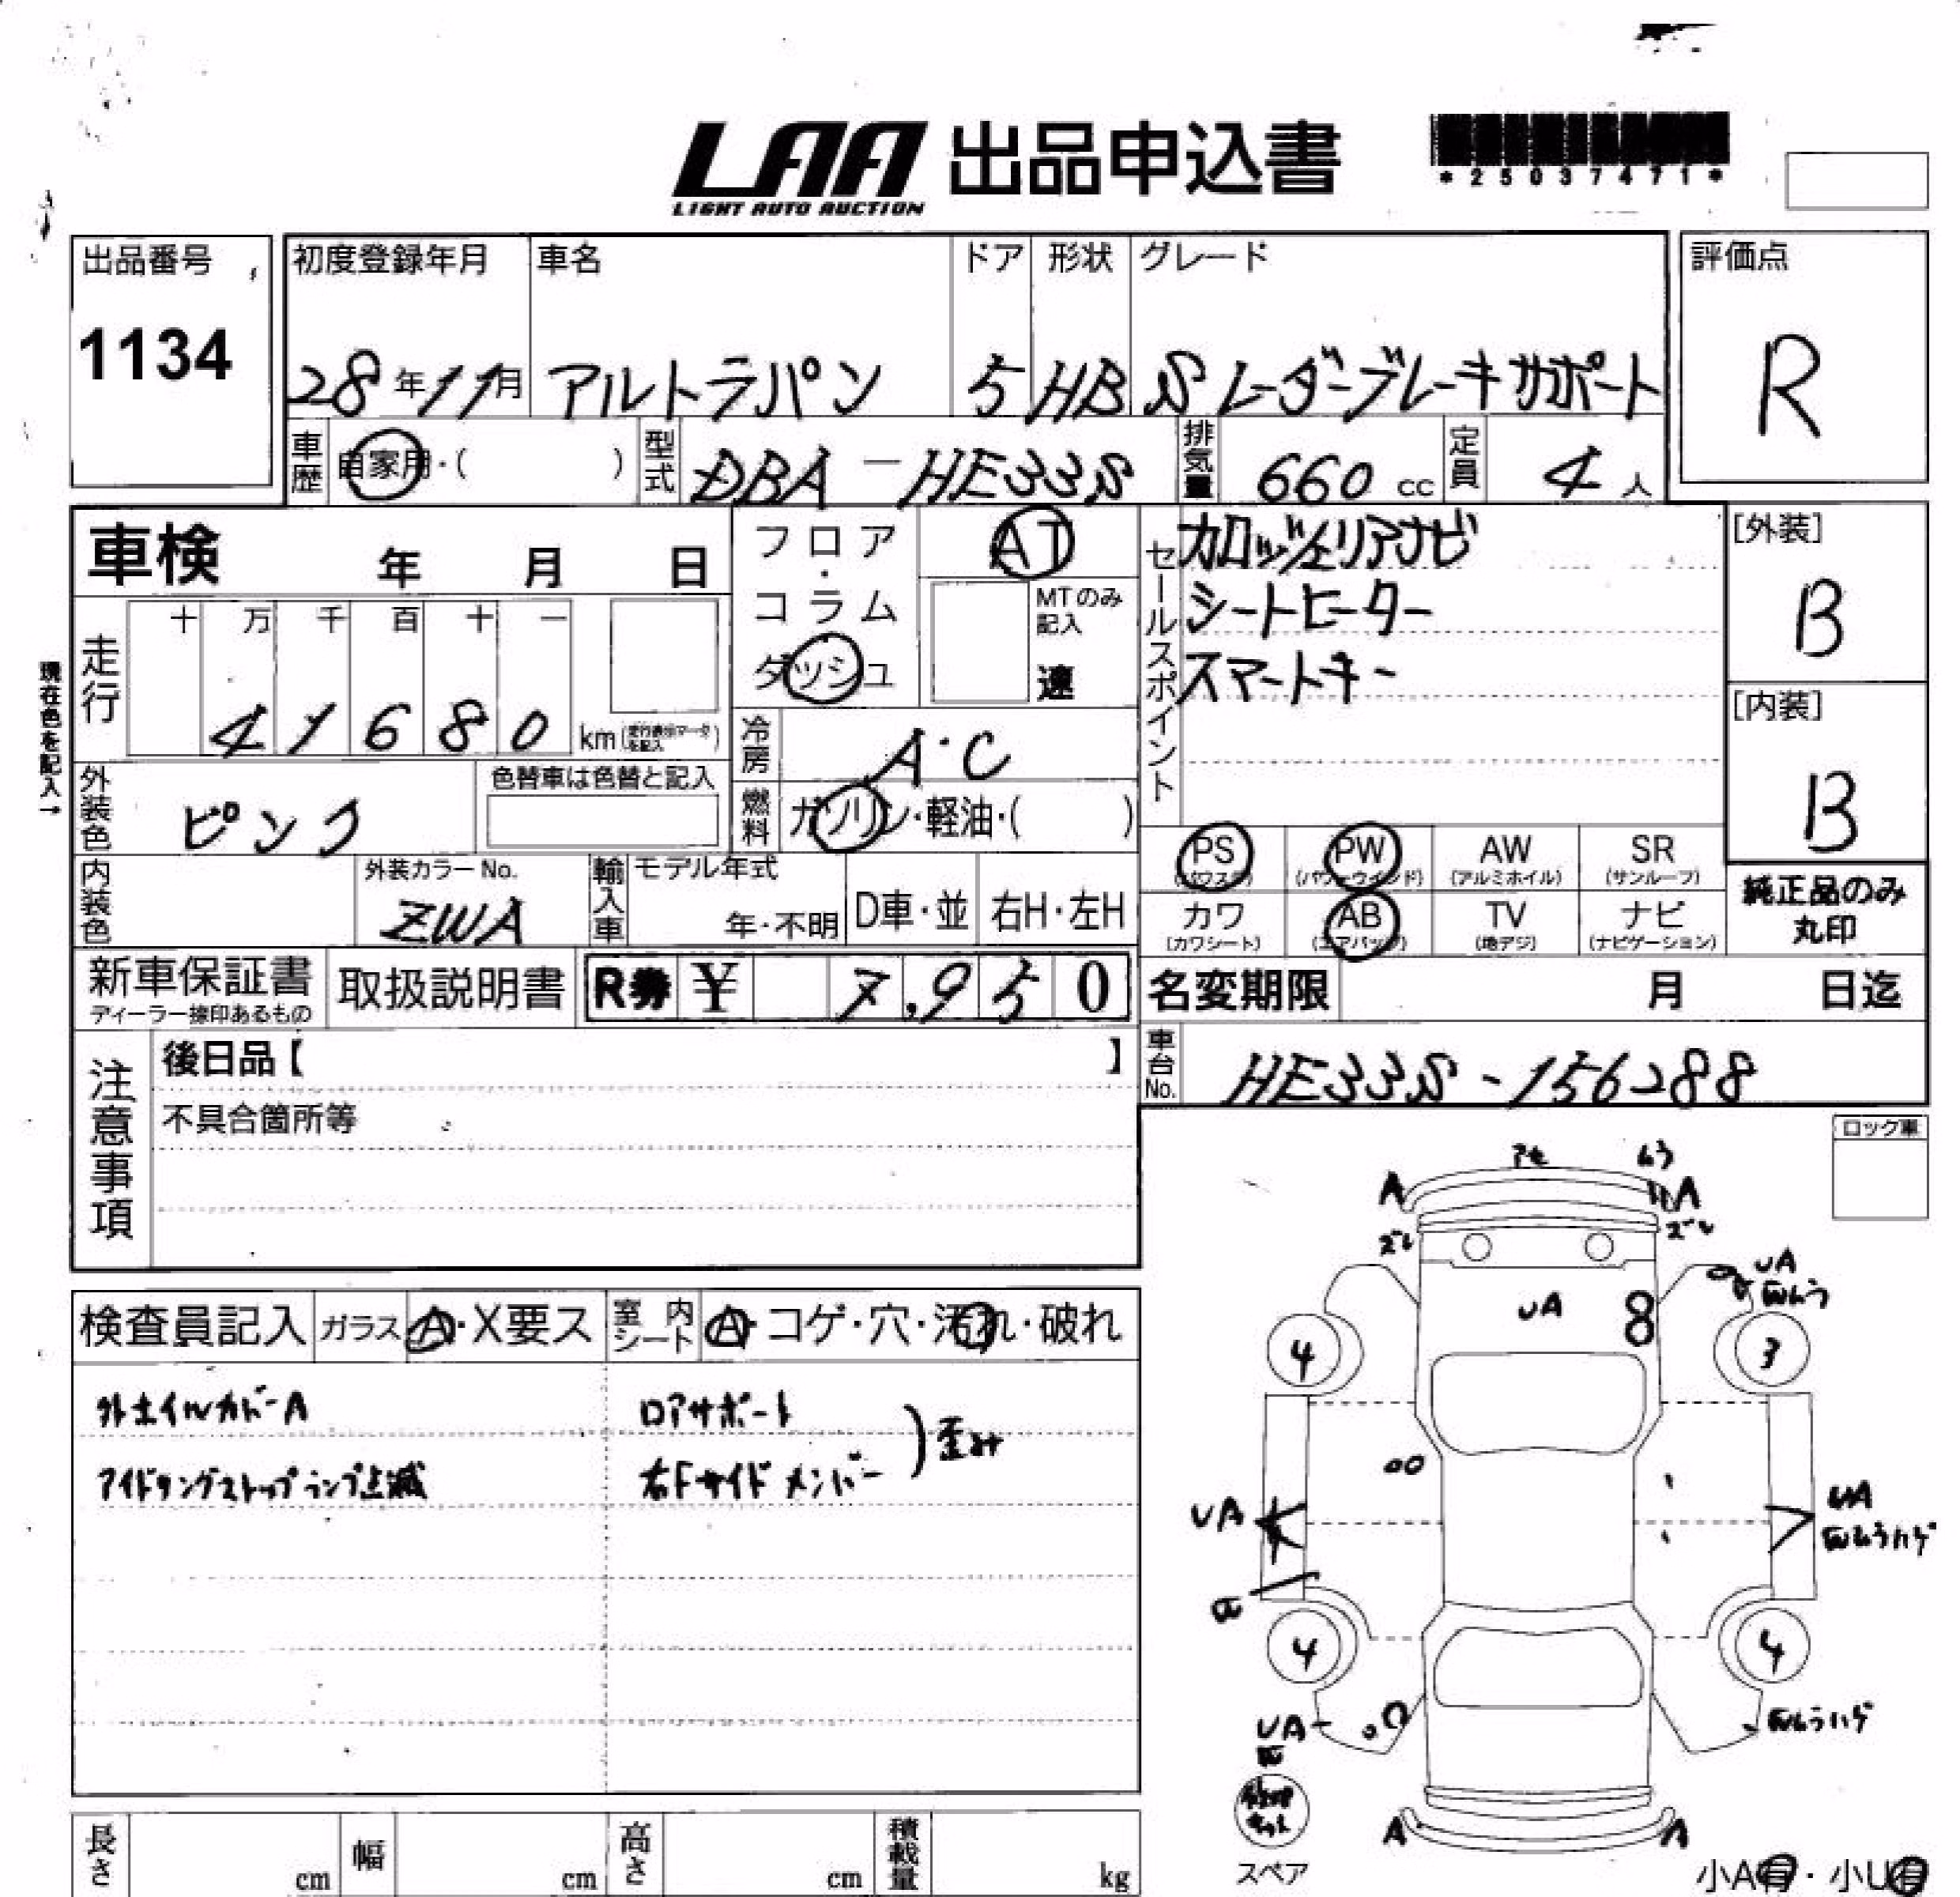 LAA 出品申込書
LIGHT AUTO AUCTION
*25037471*
出品番号
1134
初度登録年月 車名 ドア 形状 グレード
28年11月 アルトラパン 5 HB S レーダーブレーキサポート
評価点
R
車歴 自家用・( ) 型式 DBA-HE33S 排気量 660 cc 定員 4人
車検 年 月 日
フロア・コラム ダッシュ
AT
MTのみ記入
速
セールスポイント
カロッツェリアナビ
シートヒーター
スマートキー
[外装]
B
[内装]
B
現在色を記入→
走行 十 万 千 百 十 一
4 1 6 8 0 km
冷房 A・C
燃料 ガソリン・軽油・( )
外装色 ピンク 色替車は色替と記入
内装色 外装カラーNo. ZWA 輸入車 モデル年式 年・不明 D車・並 右H・左H
PS (パワステ) PW (パワーウインド) AW (アルミホイル) SR (サンルーフ)
カワ (カワシート) AB (エアバッグ) TV (地デジ) ナビ (ナビゲーション)
純正品のみ
丸印
新車保証書 ディーラー捺印あるもの 取扱説明書 R券 ¥ 7,950
名変期限 月 日迄
車台No. HE33S-156288
注意事項
後日品【 】
不具合箇所等
ロック車
検査員記入 ガラス A・X要ス 室内シート A・コゲ・穴・汚れ・破れ
外ホイルカバーA
アイドリングストップランプ点滅
ロアサポート
右Fサイドメンバー
)歪み
アセ ムラ
A A
ズレ ズレ
UA
UA 8
4 3
UA UA
4 4
UA
A A
スペア
小A有・小U有
長さ cm 幅 cm 高さ cm 積載量 kg